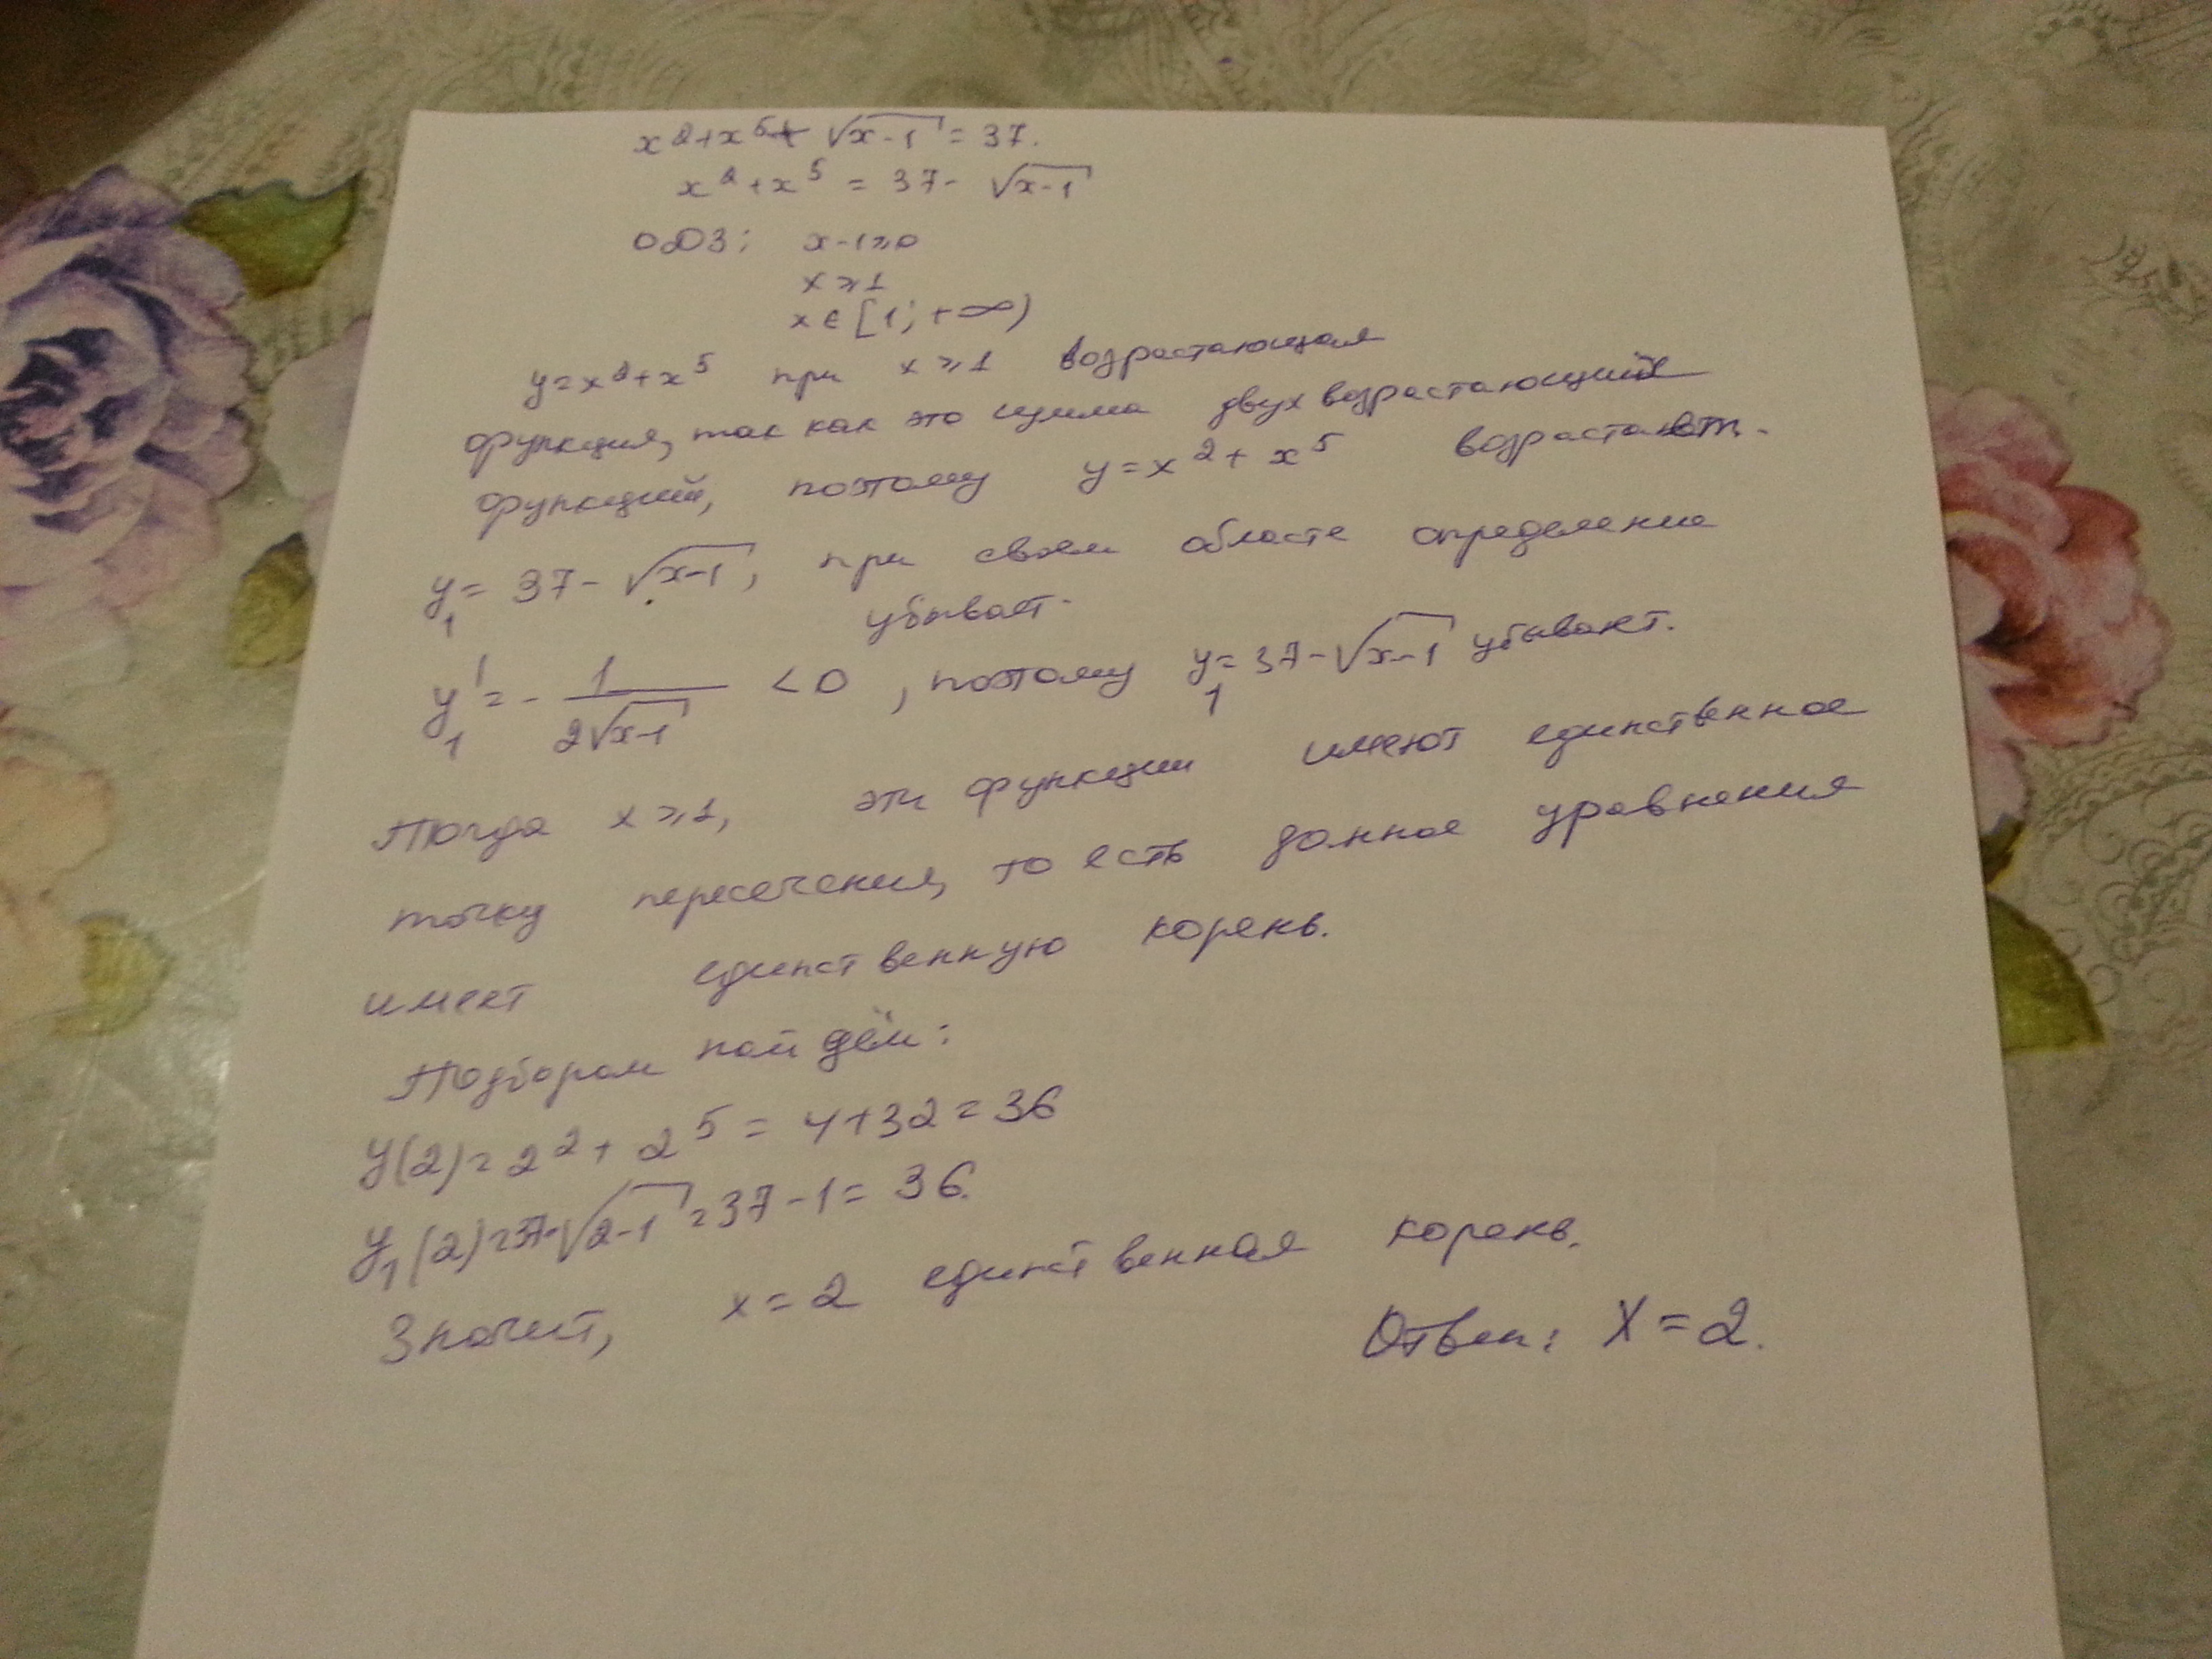 x² + x⁵ + √(x-1) = 37.
x² + x⁵ = 37 - √(x-1)
ОДЗ: x-1≥0
x ≥ 1
x ∈ [1; +∞)
y = x² + x⁵ при x ≥ 1 возрастающая
функция, так как это сумма двух возрастающих
функций, поэтому y = x² + x⁵ возрастает.
y₁ = 37 - √(x-1), при своем области определение
убывает.
y₁' = - 1/(2√(x-1)) < 0, поэтому y₁ = 37 - √(x-1) убывает.
Тогда x ≥ 1, эти функции имеют единственное
точку пересечения, то есть данное уравнения
имеет единственную корень.
Подбором найдём:
y(2) = 2² + 2⁵ = 4 + 32 = 36
y₁(2) = 37 - √(2-1) = 37 - 1 = 36.
Значит, x = 2 единственная корень.
Ответ: X = 2.